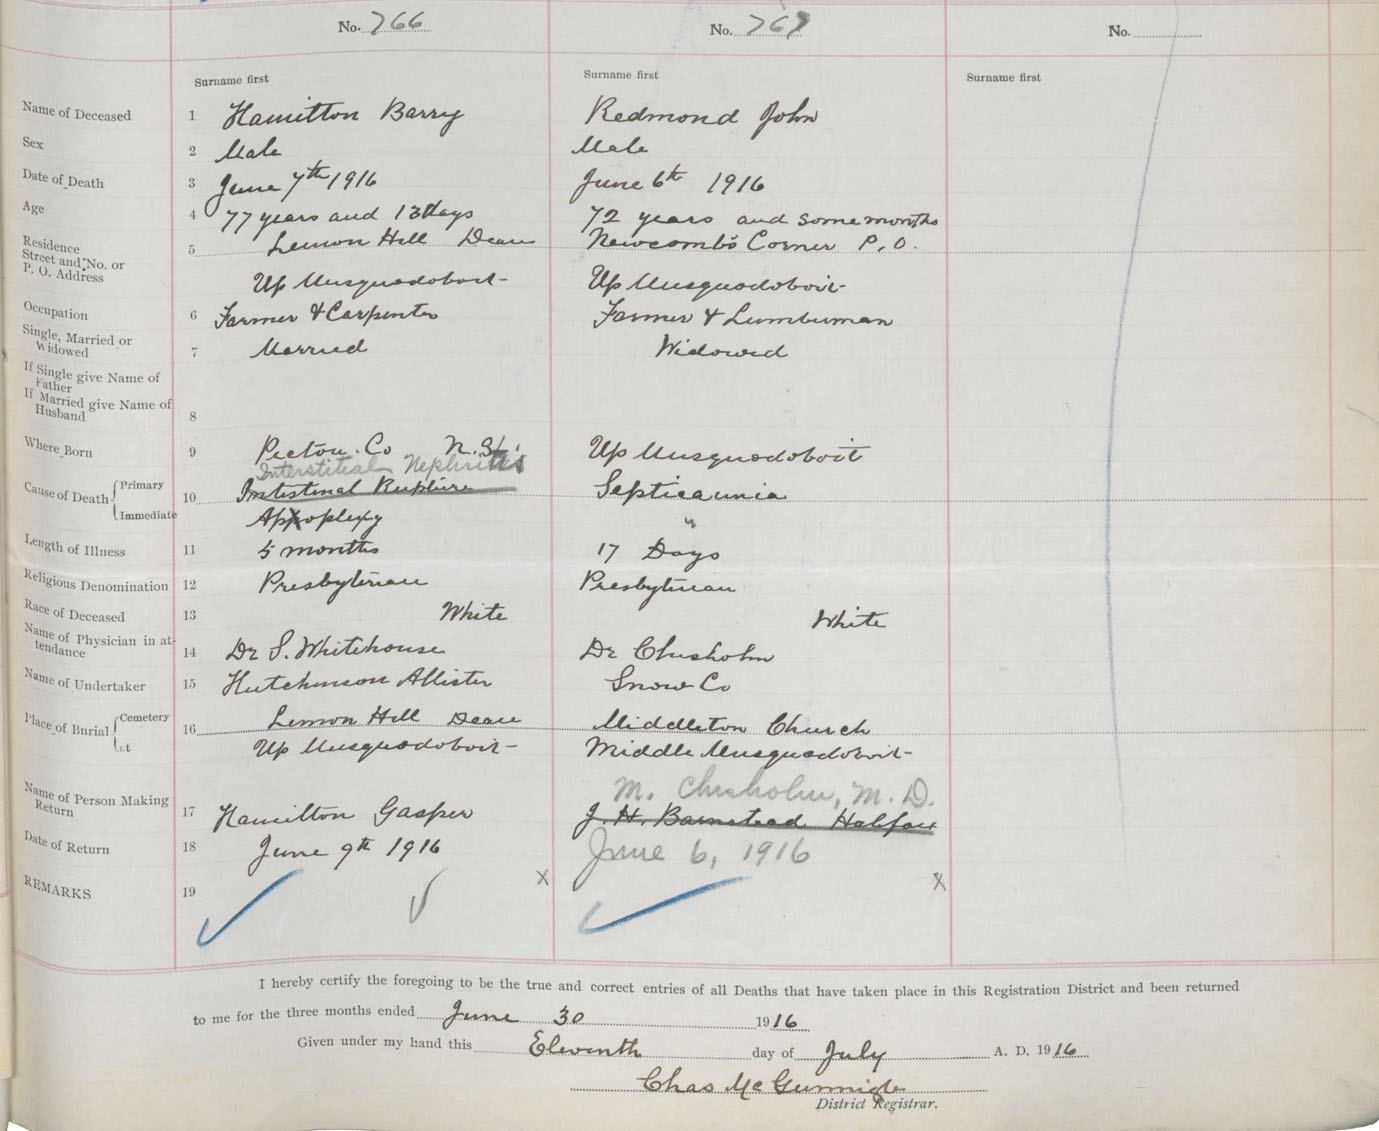 No. 766 No. 767 No.
Surname first Surname first Surname first
Name of Deceased 1 Hamilton Barry Redmond John
Sex 2 Male Male
Date of Death 3 June 7th 1916 June 6th 1916
Age 4 77 years and 13 days 72 years and some months
Residence Street and No. or P. O. Address 5 Lemon Hill Dean Newcomb's Corner P. O.
Up Musquodoboit Up Musquodoboit
Occupation 6 Farmer & Carpenter Farmer & Lumberman
Single, Married or Widowed 7 Married Widowed
If Single give Name of Father
If Married give Name of Husband 8
Where Born 9 Pictou Co N.S. Up Musquodoboit
Interstitial Nephritis
Cause of Death Primary 10 Intestinal Rupture Septicaemia
Immediate Apoplexy "
Length of Illness 11 5 months 17 Days
Religious Denomination 12 Presbyterian Presbyterian
Race of Deceased 13 White White
Name of Physician in attendance 14 Dr S. Whitehouse Dr Chisholm
Name of Undertaker 15 Hutchinson Allister Snow Co
Place of Burial Cemetery 16 Lemon Hill Dean Middleton Church
Up Musquodoboit Middle Musquodoboit
M. Chisholm, M. D.
Name of Person Making Return 17 Hamilton Gasper J. H. Barnstead Halifax
Date of Return 18 June 9th 1916 June 6, 1916
REMARKS 19 X X
I hereby certify the foregoing to be the true and correct entries of all Deaths that have taken place in this Registration District and been returned
to me for the three months ended June 30 1916
Given under my hand this Eleventh day of July A. D. 1916
Chas McGunnigle
District Registrar.